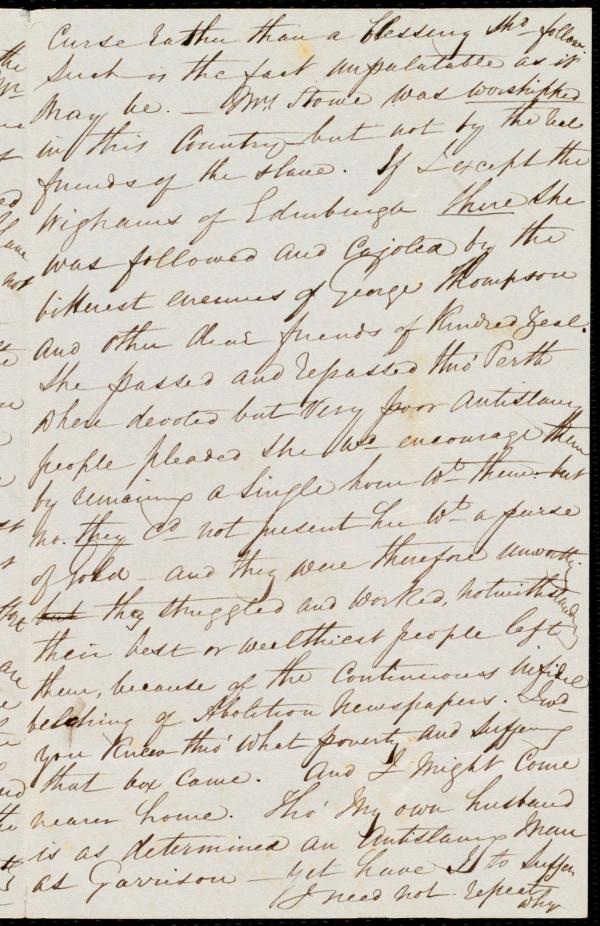 Curse rather than a blessing shd. follow.
Such is the fact unpalatable as it
may be. — Mrs. Stowe was worshipped
in this Country but not by the real
friends of the slave. If I except the
Wighams of Edinburgh there she
was followed and cajoled by the
bitterest enemies of George Thompson
and other dear friends of kindred zeal.
She passed and repassed thro' Perth
where devoted but very poor Antislavery
people pleaded she wd. encourage them
by remaining a single hour wt. them — but
no. they cd. not present her wt. a purse
of gold — and they were therefore unworthy.
but they struggled and worked, notwithstanding
their best or wealthiest people left
them, because of the continuous infidel
belching of Abolition Newspapers.
you knew thro' what poverty and suffering
that box came. And I might come
nearer home. Tho' my own husband
is as determined an Antislavery Man
as Garrison — yet have I to suffer
I need not repeat why